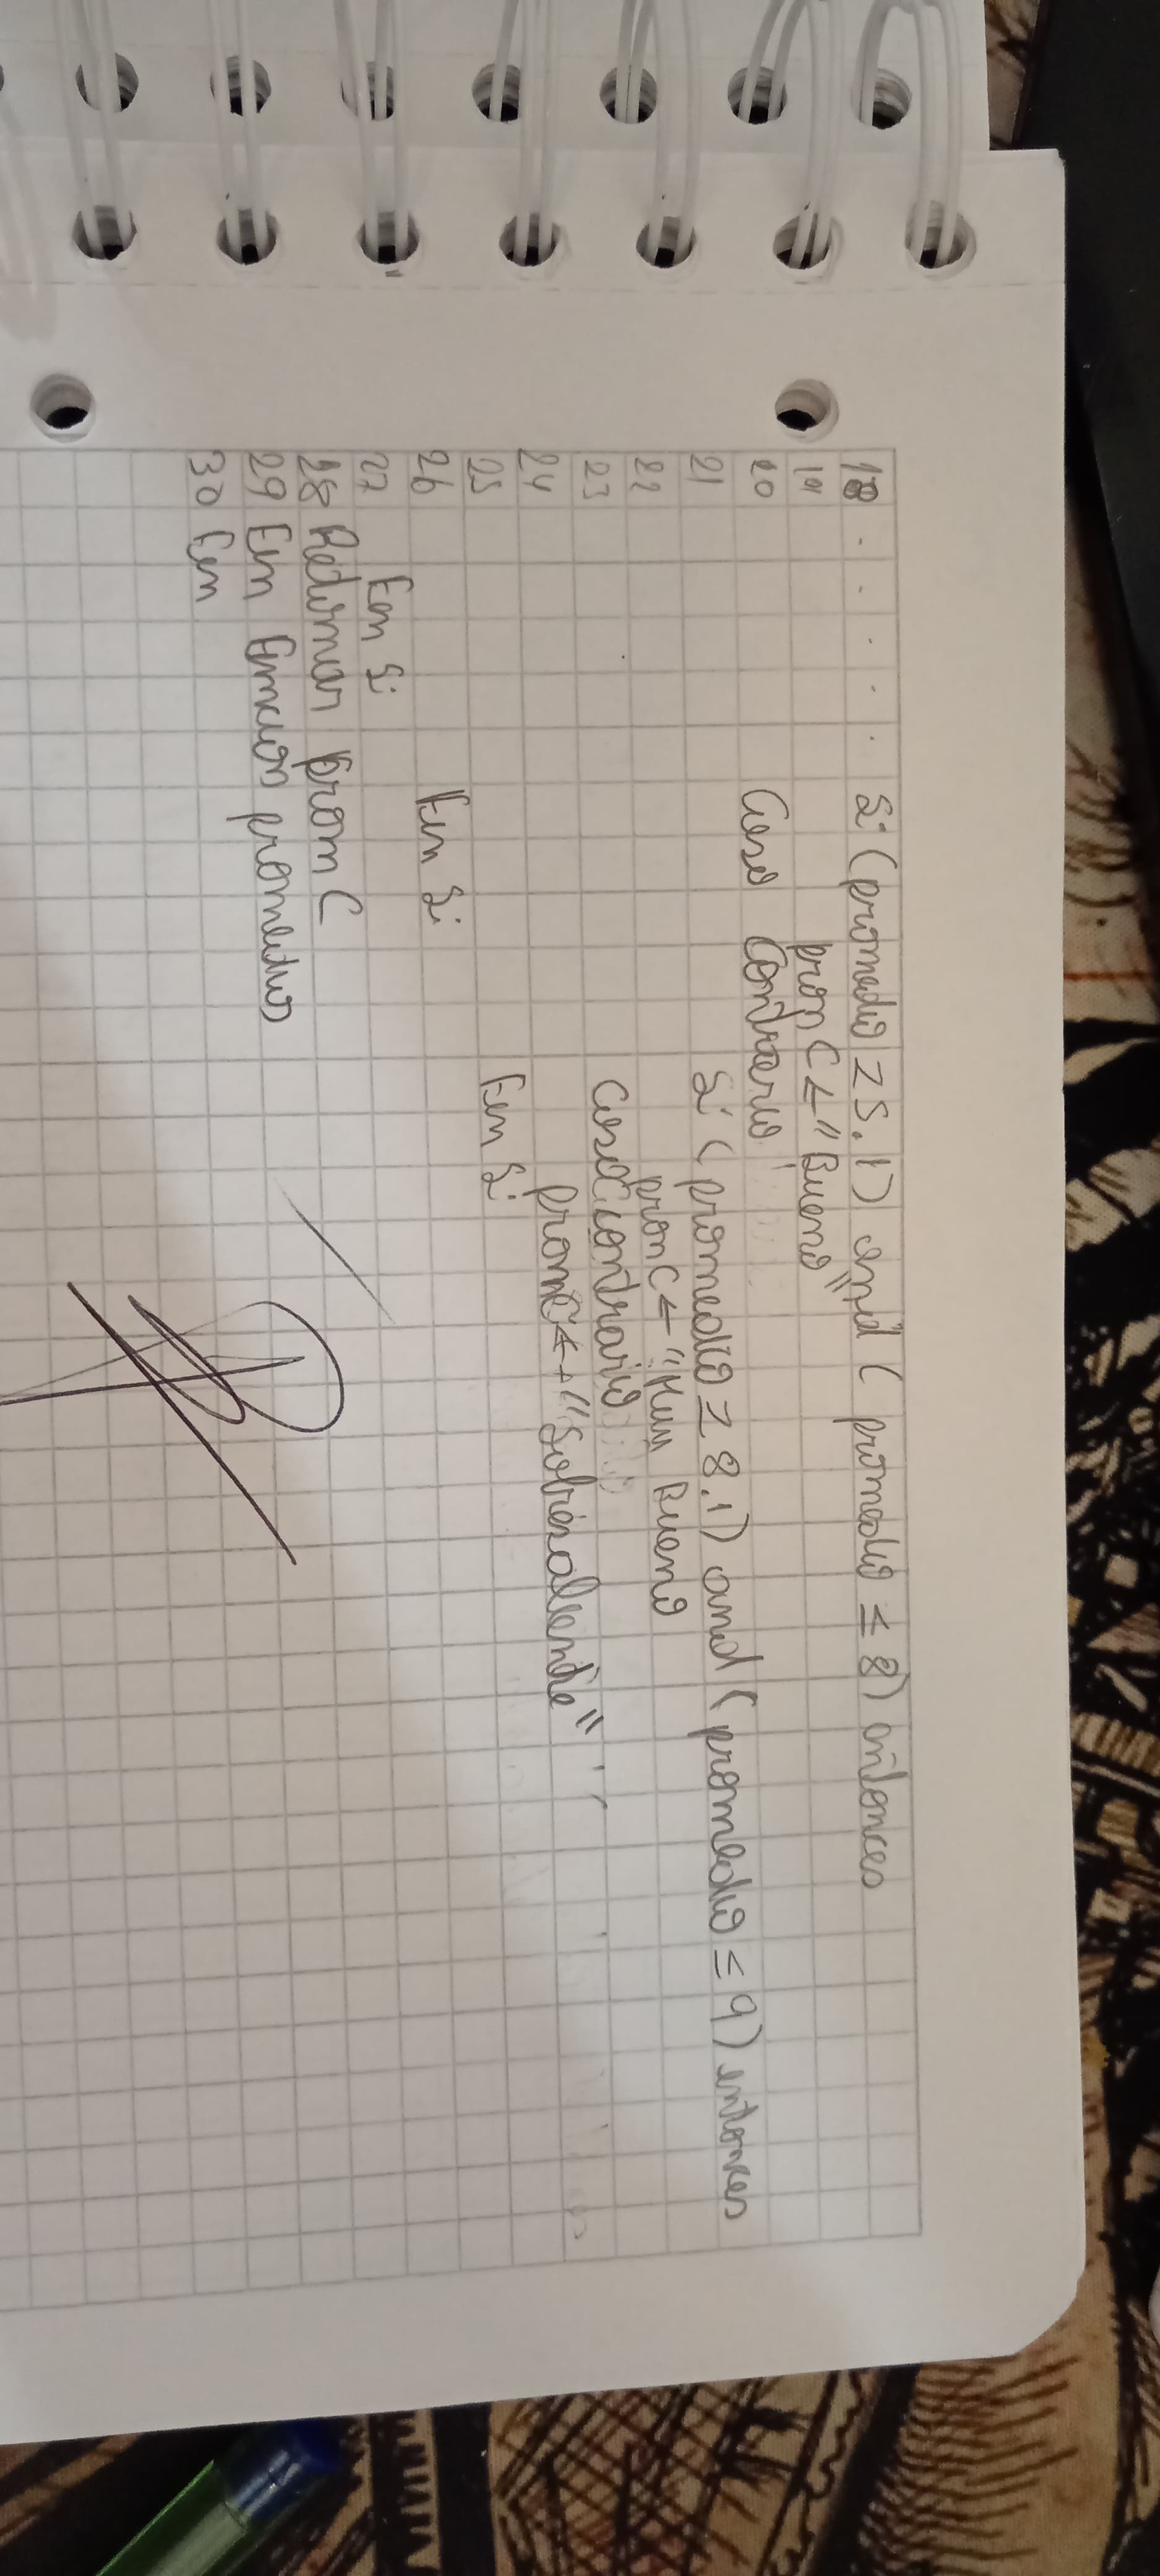 18 . . . . . Si (promedio ≥ 5.1) and (promedio ≤ 8) entonces
19 promC ← "Bueno"
20 Caso Contrario
21 Si (promedio ≥ 8.1) and (promedio ≤ 9) entonces
22 promC ← "Muy Bueno
23 Caso Contrario
24 promC ← "Sobresaliente"
25 Fin Si
26 Fin Si
27 Fin Si
28 Retornar promC
29 Fin Funcion promedios
30 Fin